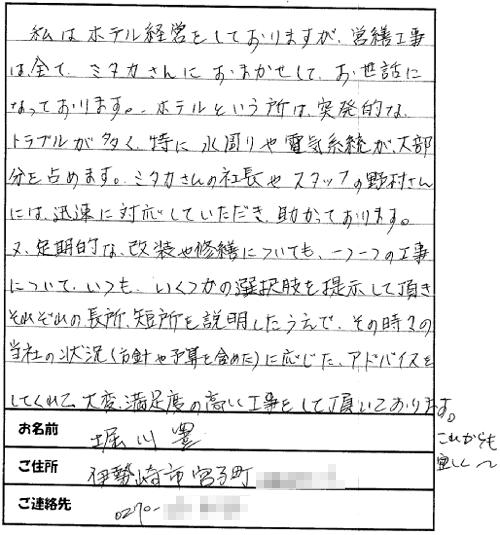 私はホテル経営をしておりますが、営繕工事
は、全て、ミタカさんにおまかせして、お世話に
なっております。ホテルという所は、突発的な、
トラブルが多く、特に水周りや電気系統が、大部
分を占めます。ミタカさんの社長やスタッフの野村さん
には、迅速に対応していただき、助かっております。
又、定期的な、改装や修繕についても、一つ一つの工事
について、いつも、いくつかの選択肢を提示して頂き
それぞれの長所、短所を説明したうえで、その時々の
当社の状況(方針や予算を含めた)に応じた、アドバイスを
してくれて、大変、満足度の高い工事をして頂いております。
これからも
宜しく〜
お名前 堀川 豊
ご住所 伊勢崎市宮子町
ご連絡先 0270-